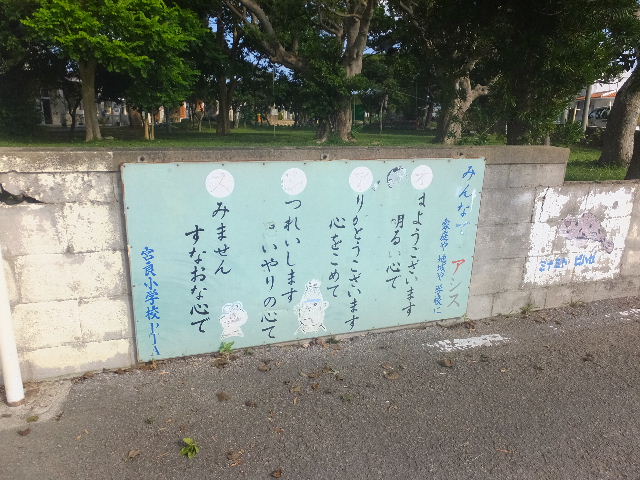 みんなで アシス
家庭や 地域や 学校に
オ はようございます
明るい心で
ア りがとうございます
心をこめて
シ つれいします
いやりの心で
ス みません
すなおな心で
宮良小学校PTA
ミナミトビハゼ